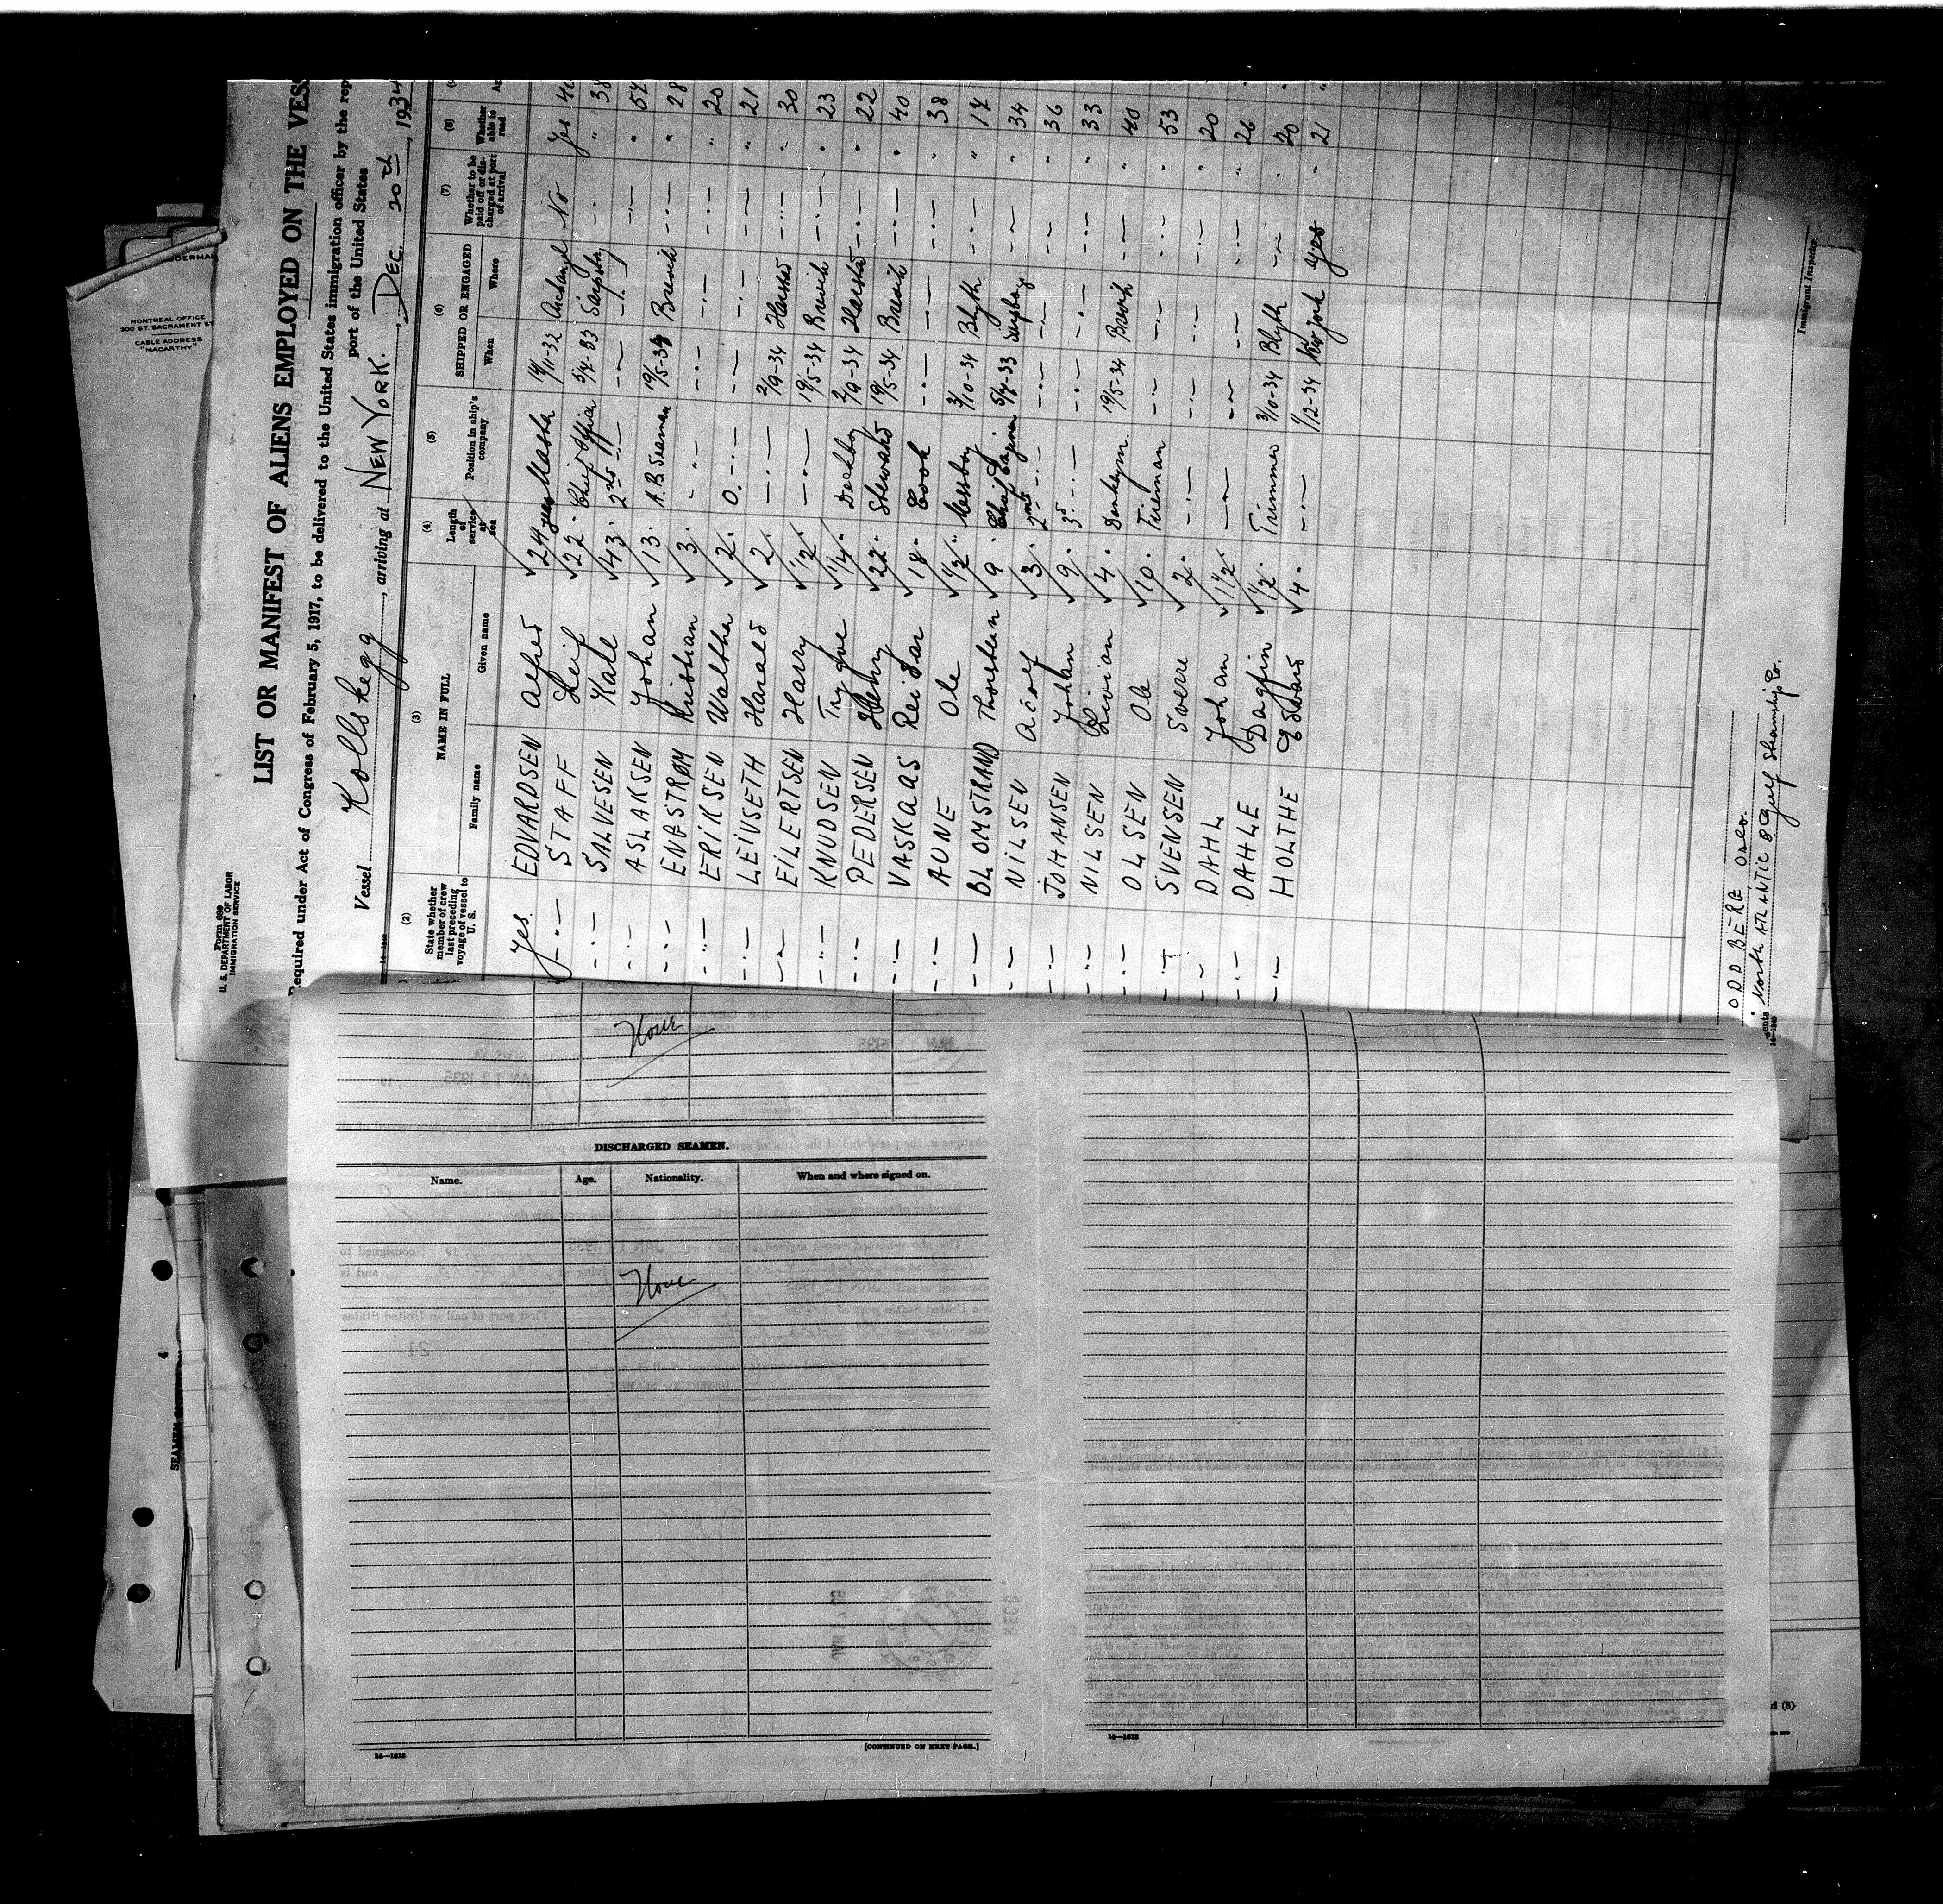 Form 680
U. S. DEPARTMENT OF LABOR
IMMIGRATION SERVICE
LIST OR MANIFEST OF ALIENS EMPLOYED ON THE VESS
Required under Act of Congress of February 5, 1917, to be delivered to the United States immigration officer by the rep
port of the United States
Vessel Kollskegg, arriving at NEW YORK., DEC. 20th, 1934
(2) (3) (4) (5) (6) (7) (8)
State whether member of crew last preceding voyage of vessel to U. S. NAME IN FULL Family name Given name Length of service at sea Position in ship's company SHIPPED OR ENGAGED When Where Whether to be paid off or discharged at port of arrival Whether able to read
Yes. EDVARDSEN Alfred 24 yrs Master 14/11-32 Archangel No Yes
-"- STAFF Leif 22 " Chief Officer 5/4-33 " 38
-"- SALVESEN Kale 43 " 2nd -"- -"- -"- " 54
-"- ASLAKSEN Johan 13 " A.B Seaman 19/5-34 Brevik -"- " 28
-"- ENGSTRØM Kristian 3 " -"- -"- -"- -"- " 20
-"- ERIKSEN Walther 2 " O. -"- -"- -"- -"- " 21
-"- LEIVSETH Harald 2 " -"- 2/9-34 Harstad -"- " 30
-"- EILERTSEN Harry 1/2 " -"- 19/5-34 Brevik -"- " 23
-"- KNUDSEN Trygve 1/4 " Deckboy 2/9-34 Harstad -"- " 22
-"- PEDERSEN Henry 22 " Steward 19/5-34 Brevik -"- " 40
-"- VASKAAS Reidar 18 " Cook -"- -"- -"- " 38
-"- AUNE Ole 1/2 " Messboy 3/10-34 Blyth -"- " 17
-"- BLOMSTRAND Thorstein 9 " Chief Engineer 5/4-33 -"- " 34
-"- NILSEN Adolf 3 " 2nd -"- -"- -"- -"- " 36
-"- JOHANSEN Johan 9 " 3d -"- -"- -"- -"- " 33
-"- NILSEN 4 " Donkeym. 19/5-34 Brevik -"- " 40
-"- OLSEN Ole 10 " Fireman -"- -"- -"- " 53
-"- SVENSEN Sverre 2 " -"- -"- -"- -"- " 20
-"- DAHL Johan 1 1/2 " -"- -"- -"- -"- " 26
-"- DAHLE Dagfin 1/2 " Trimmer 3/10-34 Blyth -"- " 20
-"- HOLTHE Edvard 4 " -"- 1/12-34 New York yes " 21
ODD BERG Oslo.
North ATLANTIC & Gulf Steamship Co.
Immigrant Inspector.
14—1240
MONTREAL OFFICE
300 ST. SACRAMENT ST
CABLE ADDRESS
"MACARTHY"
None
DISCHARGED SEAMEN.
Name. Age. Nationality. When and where signed on.
None
14—1615
[CONTINUED ON NEXT PAGE.]
14—1615